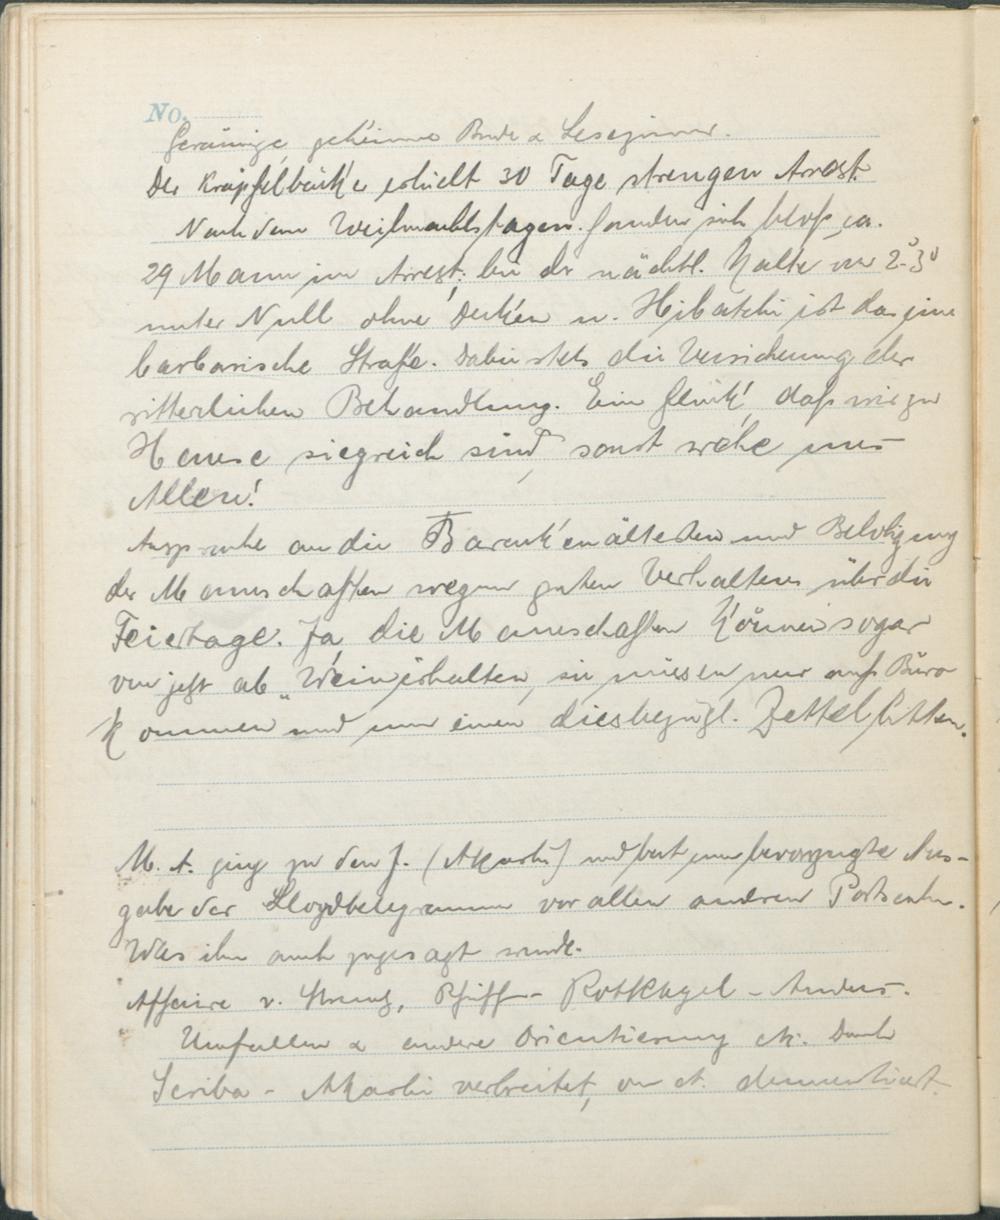 No.
Geräumige geheime Bude & Lesezimmer.
Der Kräpfelbäcker erhielt 30 Tage strengen Arrest.
Nach den Weihnachtstagen fanden sich bloß ca.
29 Mann im Arrest; bei der nächtl. Kälte von 2-3°
unter Null ohne Decken u. Hibatchi ist das eine
barbarische Strafe. Dabei stets die Versicherung der
ritterlichen Behandlung. Ein Glück, daß wir zu
Hause siegreich sind, sonst wehe uns
Allen!
Ansprache an die Barackenältesten und Belobigung
der Mannschaften wegen guten Verhaltens über die
Feiertage. Ja, die Mannschaften können sogar
von jetzt ab "Wein" erhalten, sie müssen nur aufs Büro
kommen und um einen diesbezügl. Zettel bitten.
M. A. ging zu den J. (Akashi) und bat um bevorzugte Aus-
gabe der Lloydtelegramme vor allen anderen Postsachen.
Was ihm auch zugesagt wurde.
Affaire v. Strauß, Pfiff - Rotkägel - Anders.
Umfallen & andere Orientierung etc. Durch
Scriba - Akashi verbreitet, von A. dementiert.